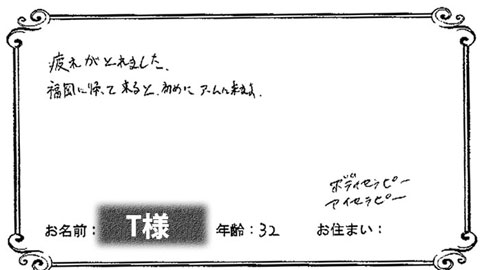 疲れがとれました、
福岡に帰って来ると、初めにアームに来ます。
ボディセラピー
アイセラピー
お名前：T様 年齢：32 お住まい：